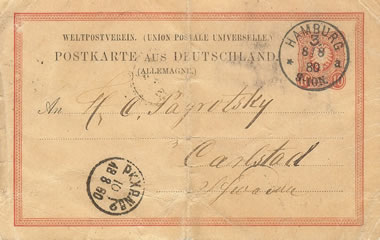 WELTPOSTVEREIN. (UNION POSTALE UNIVERSELLE.)
POSTKARTE AUS DEUTSCHLAND.
(ALLEMAGNE.)
HAMBURG
3.
8 8
80
a
An H. C. Pagrotsky
Carlstad
PKXP.Nº2
10